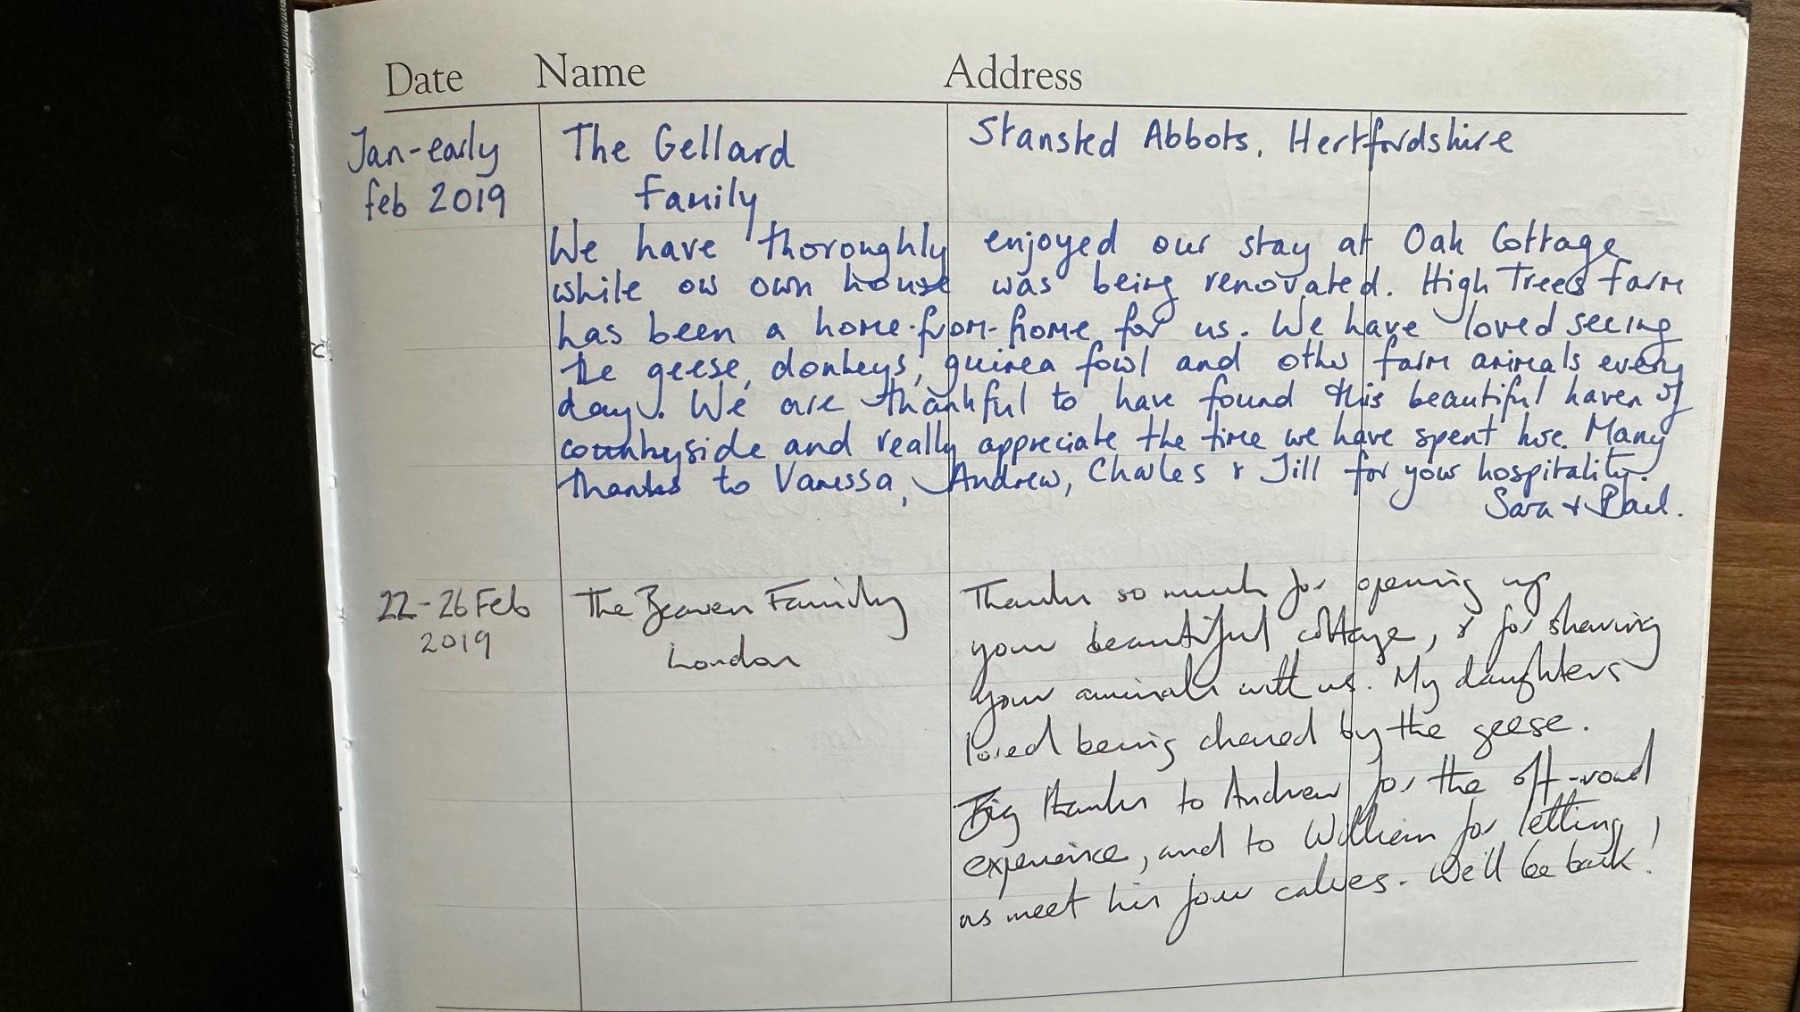 Date Name Address
Jan-early The Gellard Stansted Abbots, Hertfordshire
feb 2019 Family
We have thoroughly enjoyed our stay at Oak Cottage
while our own house was being renovated. High Trees Farm
has been a home-from-home for us. We have loved seeing
the geese, donkeys, guinea fowl and other farm animals every
day. We are thankful to have found this beautiful haven of
countryside and really appreciate the time we have spent here. Many
thanks to Vanessa, Andrew, Charles & Jill for your hospitality.
Sara & Paul.
22-26 Feb The Beaven Family Thanks so much for opening up
2019 London your beautiful cottage, & for sharing
your animals with us. My daughters
loved being chased by the geese.
Big thanks to Andrew for the off-road
experience, and to William for letting
us meet his four calves. We'll be back!